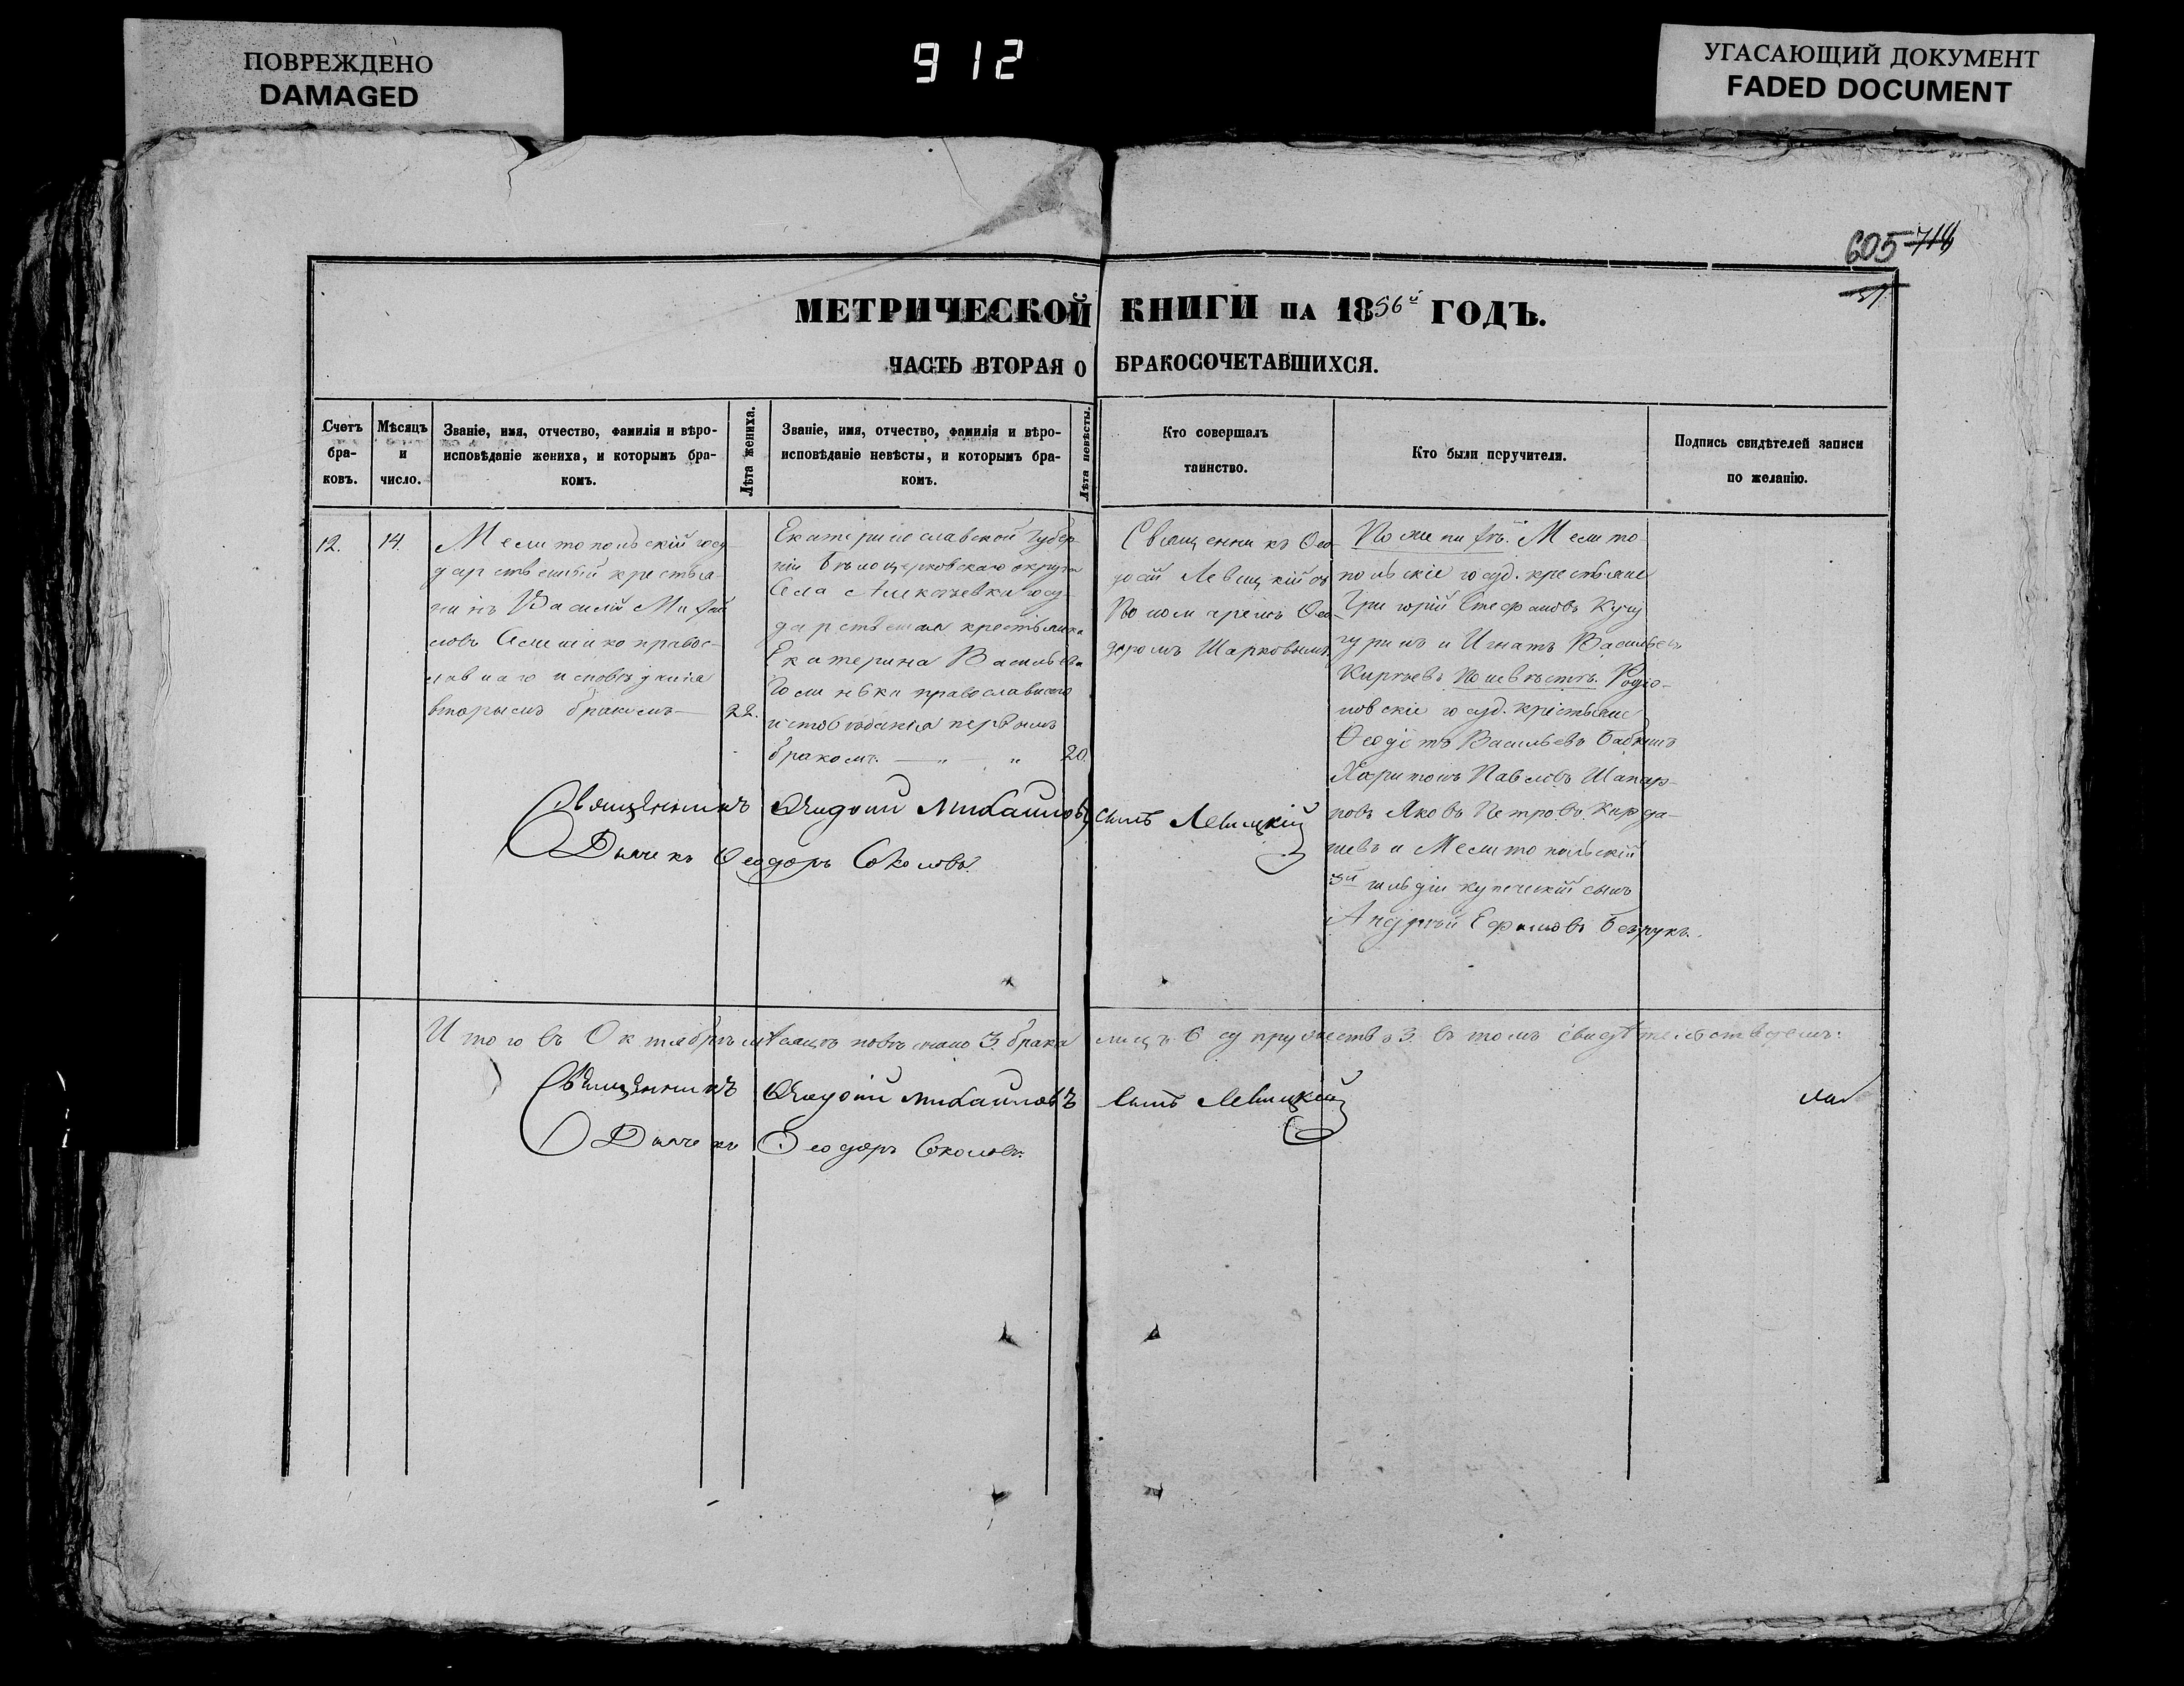 ПОВРЕЖДЕНО
DAMAGED
912
УГАСАЮЩИЙ ДОКУМЕНТ
FADED DOCUMENT
605 719
МЕТРИЧЕСКОЙ КНИГИ на 1856й ГОДЪ.
ЧАСТЬ ВТОРАЯ О БРАКОСОЧЕТАВШИХСЯ.
Счетъ
бра-
ковъ.
Мѣсяцъ
и
число.
Званіе, имя, отчество, фамилія и вѣро-
исповѣданіе жениха, и которымъ бра-
комъ.
Лѣта жениха.
Званіе, имя, отчество, фамилія и вѣро-
исповѣданіе невѣсты, и которымъ бра-
комъ.
Лѣта невѣсты.
Кто совершалъ
таинство.
Кто были поручители.
Подпись свидѣтелей записи
по желанію.
12.
14.
Мелитопольскій госу-
дарственный крестья-
нинъ Василій
православ-
наго исповѣданія
вторымъ бракомъ
22.
Екатеринославской Губер-
ніи Бѣлоцерковскаго округа
Села госу-
дарственная крестьянка
Екатерина Васильева
православнаго
исповѣданія первымъ
бракомъ. — „ — „
20.
Священникъ Ѳео-
досій Левицкій съ
Пономаремъ Ѳео-
доромъ Шарковымъ.
По женихѣ: Мелито-
польскіе госуд. крестьяне
Григорій Стефановъ Кучу-
гуринъ и Игнатъ Васильевъ
Киріевъ По невѣстѣ. Родіо-
новскіе госуд. крестьяне
Ѳеодотъ Васильевъ Бабкинъ
Харитонъ Павловъ
Яковъ Петровъ Кирда-
шевъ и Мелитопольскій
3й гильдіи купеческій сынъ
Андрей Ефимовъ Безрукъ.
Священникъ Ѳеодосій Михаиловъ сынъ Левицкій
Дьячекъ Ѳеодоръ Соколовъ.
Итого въ Октябрѣ мѣсяцѣ повѣнчано 3. брака лицъ 6 супружествъ 3. въ томъ свидѣтельствуемъ:
Священникъ Ѳеодосій Михаиловъ сынъ Левицкій
Дьячекъ Ѳеодоръ Соколовъ.